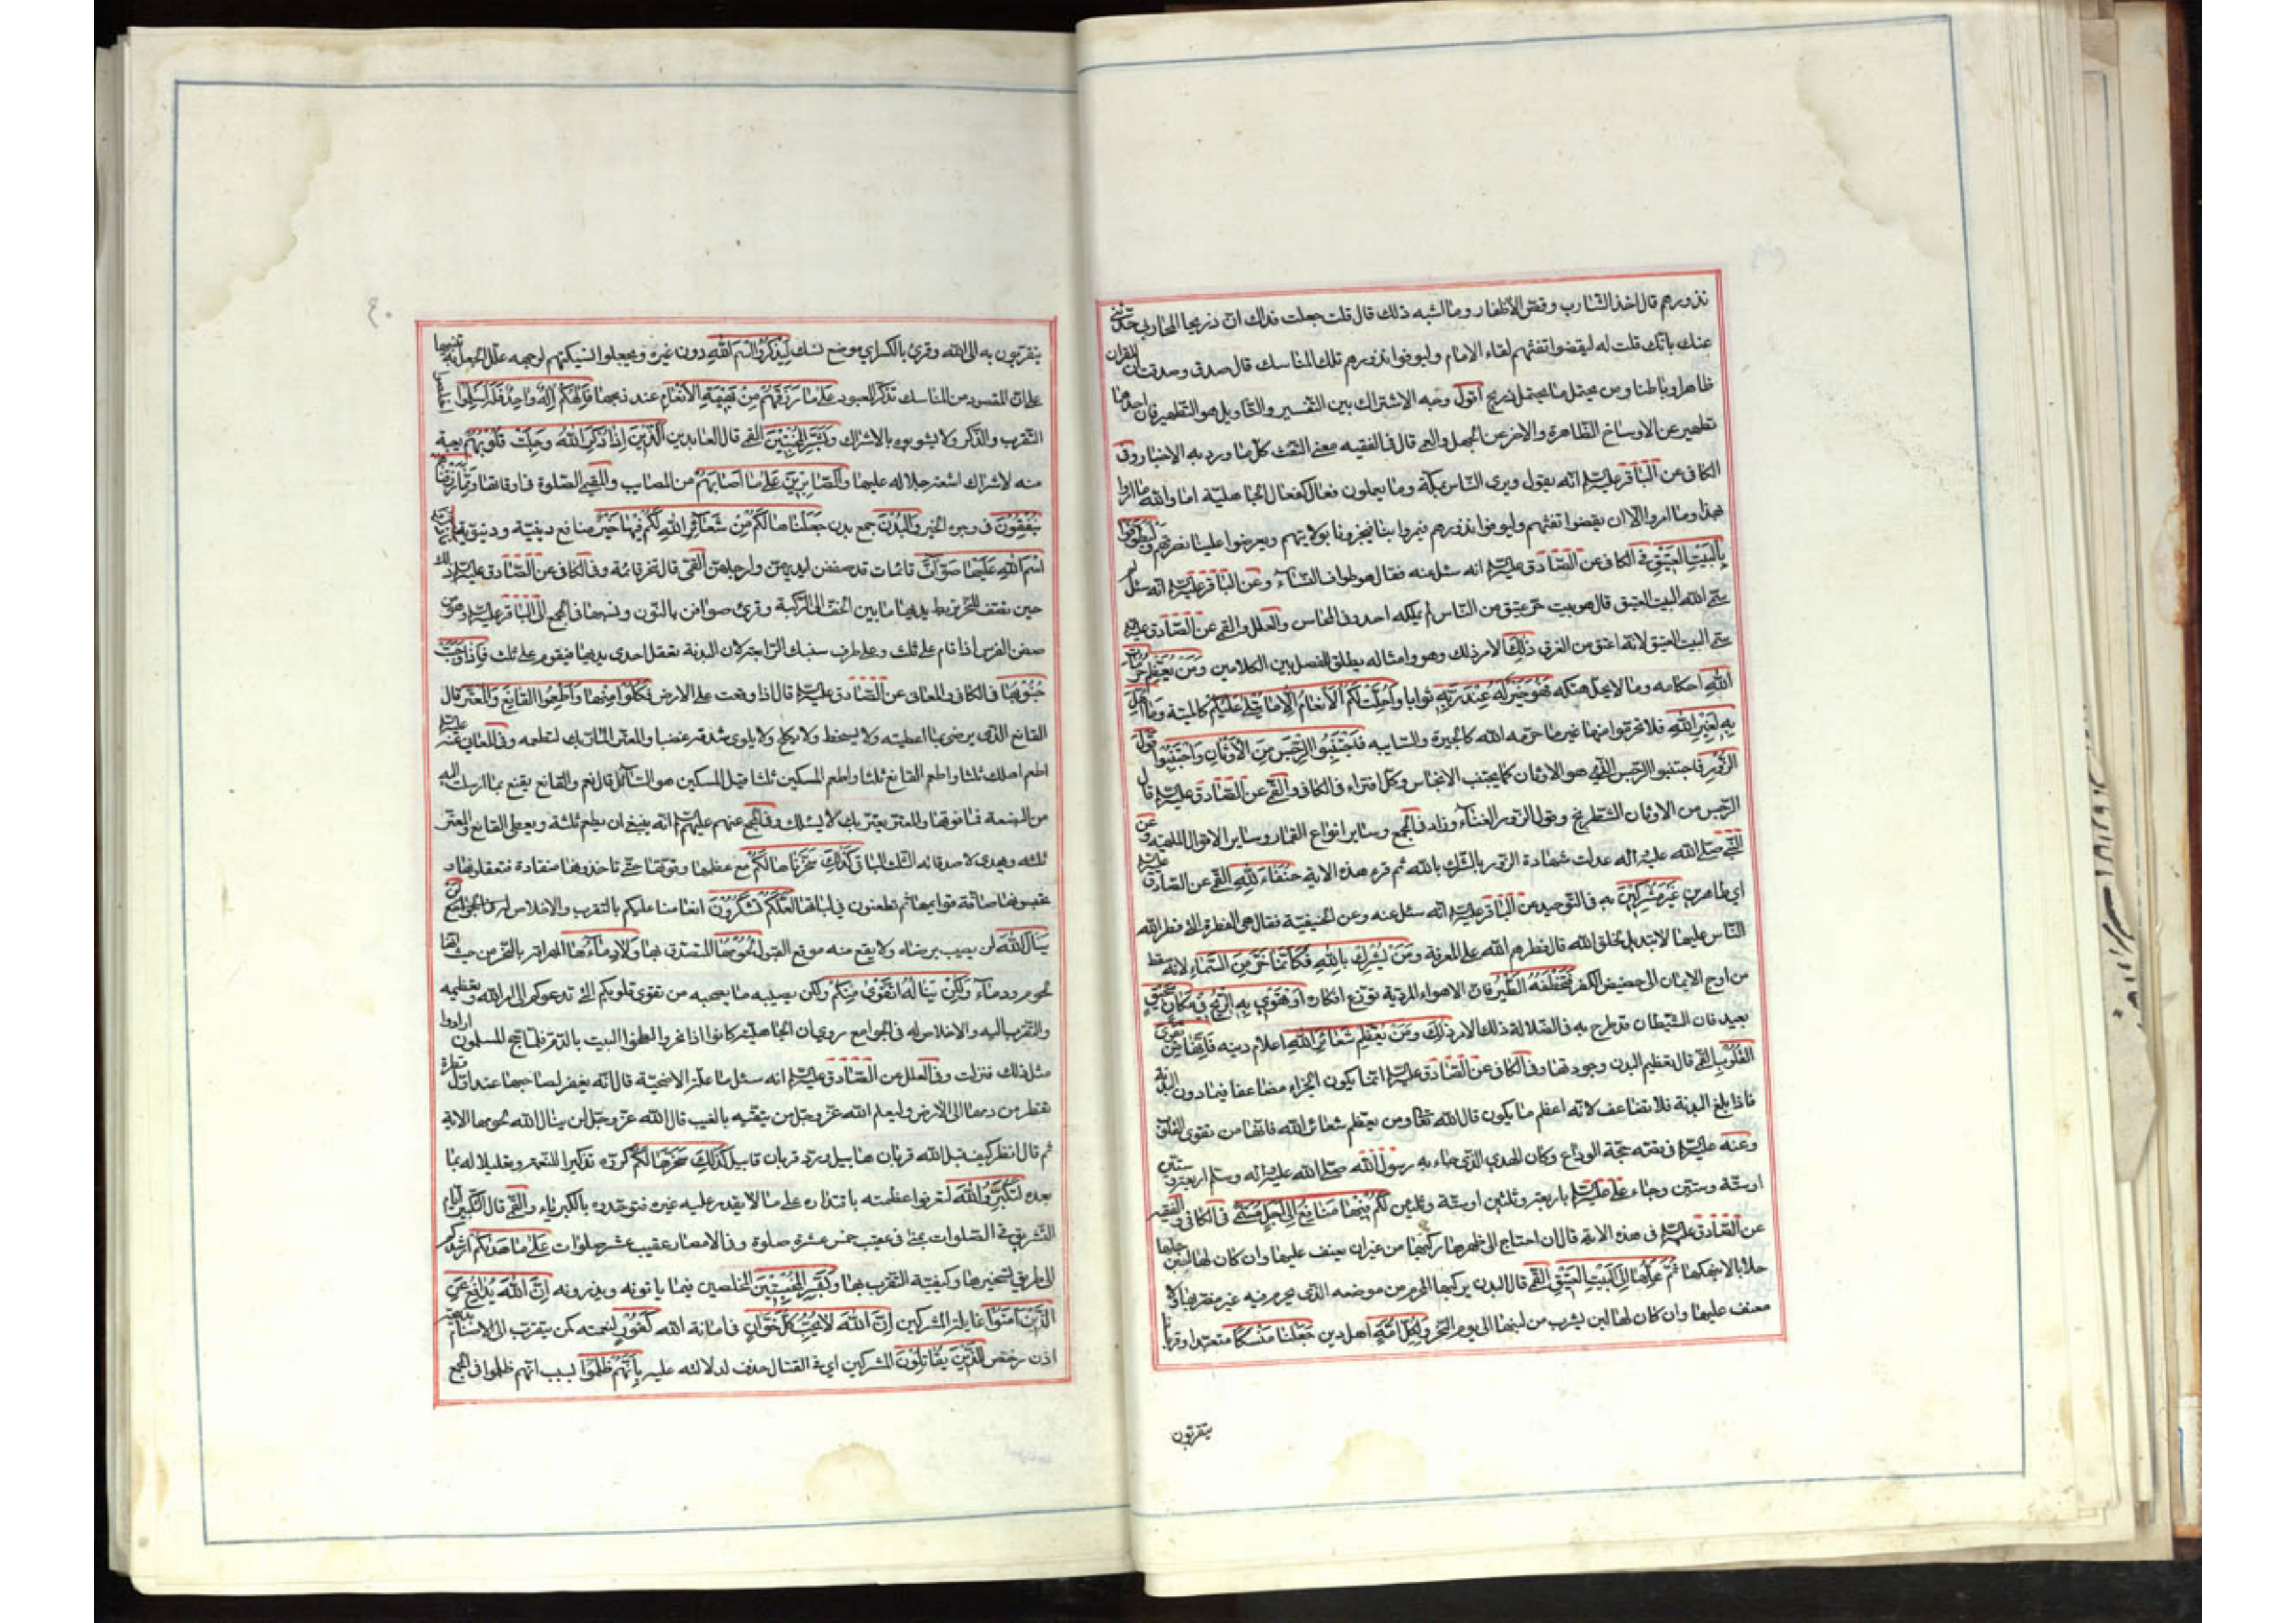 نذورهم قال اخذ الشارب وقص الاظفار وما اشبه ذلك قال قلت جعلت فداك ان ذريحا المحاربي حدثني
عنك بانك قلت له ليقضوا تفثهم لقاء الامام وليوفوا نذورهم تلك المناسك قال صدق وصدقت ان للقران
ظاهرا وباطنا ومن يحتمل ما يحتمل ذريح اقول وجه الاشتراك بين التفسير والتاويل هو التطهير فان احدهما
تطهير عن الاوساخ الظاهرة والاخر عن الجهل والعمى قال في الفقيه معنى التفث كل ما ورد به الاخبار وفي
الكافي عن الباقر عليه السلم انه يقول ويرى الناس بمكة وما يعملون فعال كفعال الجاهلية اما والله ما امروا
بهذا وما امروا الا ان يقضوا تفثهم وليوفوا نذورهم فيمروا بنا فيخبرونا بولايتهم ويعرضوا علينا نصرتهم وليطوفوا
بالبيت العتيق في الكافي عن الصادق عليه السلم انه سئل عنه فقال هو طواف النساء وعن الباقر عليه السلم انه سئل لم
سمى الله البيت العتيق قال هو بيت حر عتيق من الناس لم يملكه احد وفي المحاسن والعلل والقمي عن الصادق عليه السلم
سمي البيت العتيق لانه اعتق من الغرق ذلك الامر ذلك وهو وامثاله يطلق للفصل بين الكلامين ومن يعظم حرمات
الله احكامه وما لا يحل هتكه فهو خير له عند ربه ثوابا واحلت لكم الانعام الا ما يتلى عليكم كالميتة وما اهل
به لغير الله فلا تحرموا منها غير ما حرمه الله كالبحيرة والسايبه فاجتنبوا الرجس من الاوثان واجتنبوا قول
الزور فاجتنبوا الرجس الذي هو الاوثان كما يجتنب الانجاس وكل افتراء في الكافي والقمي عن الصادق عليه السلم قال
الرجس من الاوثان الشطرنج وقول الزور الغناء وزاد في المجمع وساير انواع القمار وساير الاقوال الملهيه وعن
النبي صلى الله عليه واله عدلت شهادة الزور بالشرك بالله ثم قرء هذه الاية حنفاء لله القمي عن الصادق عليه السلم
اي طاهرين غير مشركين به في التوحيد عن الباقر عليه السلم انه سئل عنه وعن الحنيفية فقال هي الفطرة التي فطر الله
الناس عليها لا تبديل لخلق الله قال فطرهم الله على المعرفة ومن يشرك بالله فكانما خر من السماء لانه سقط
من اوج الايمان الى حضيض الكفر فتخطفه الطير فان الاهواء المردية توزع افكاره او تهوي به الريح في مكان سحيق
بعيد فان الشيطان قد طرح به في الضلالة ذلك الامر ذلك ومن يعظم شعائر الله اعلام دينه فانها من تقوى
القلوب القمي قال تعظيم البدن وجودتها وفي الكافي عن الصادق عليه السلم انما يكون الجزاء مضاعفا فيما دون البدنة
فاذا بلغ البدنة فلا تضاعف لانه اعظم ما يكون قال الله تعالى ومن يعظم شعائر الله فانها من تقوى القلوب
وعنه عليه السلم في قصة حجة الوداع وكان الهدي الذي جاء به رسول الله صلى الله عليه واله وسلم اربعة وستين
او ستة وستين وجاء علي عليه السلم باربعة وثلثين او ستة وثلثين لكم فيها منافع الى اجل مسمى في الكافي والفقيه
عن الصادق عليه السلم في هذه الاية قال ان احتاج الى ظهرها ركبها من غير ان يعنف عليها وان كان لها لبن حلبها
حلابا لا ينهكها ثم محلها الى البيت العتيق القمي قال البدن يركبها المحرم من موضعه الذي يحرم فيه غير مضر بها ولا
معنف عليها وان كان لها لبن يشرب من لبنها الى يوم النحر ولكل امة اهل دين جعلنا منسكا متعبدا وقربانا
يتقربون
يتقربون به الى الله وقرئ بالكسر اي موضع نسك ليذكروا اسم الله دون غيره ويجعلوا نسيكتهم لوجهه علل الجعل به تنبيها
على ان المقصود من المناسك تذكر المعبود على ما رزقهم من بهيمة الانعام عند ذبحها فالهكم اله واحد فله اسلموا اخلصوا
التقرب والذكر ولا يشوبوه بالاشراك وبشر المخبتين القمي قال العابدين الذين اذا ذكر الله وجلت قلوبهم هيبة
منه لاشراق اشعة جلاله عليها والصابرين على ما اصابهم من المصايب والمقيمي الصلوة في اوقاتها ومما رزقناهم
ينفقون في وجوه الخير والبدن جمع بدنة جعلناها لكم من شعائر الله لكم فيها خير منافع دينية ودنيوية فاذكروا
اسم الله عليها صواف قائمات قد صففن ايديهن وارجلهن القمي قال تنحر قائمة وفي الكافي عن الصادق عليه السلم ذلك
حين تصف للنحر تربط يديها ما بين الخف الى الركبة وقرئ صوافن بالنون ونسبها في المجمع الى الباقر عليه السلم وهو من
صفن الفرس اذا قام على ثلث وعلى طرف سنبك الرابعة لان البدنة تعقل احدى يديها فيقوم على ثلث فاذا وجبت
جنوبها في الكافي والمعاني عن الصادق عليه السلم قال اذا وقعت على الارض فكلوا منها واطعموا القانع والمعتر قال
القانع الذي يرضى بما اعطيته ولا يسخط ولا يكلح ولا يلوي شدقه غضبا والمعتر المار بك لتطعمه وفي المعاني عنه عليه السلم
اطعم اهلك ثلثا واطعم القانع ثلثا واطعم المسكين ثلثا قيل المسكين هو السائل قال نعم والقانع يقنع بما ارسلت اليه
من البضعة فما فوقها والمعتر يعتر بك لا يسئلك وفي المجمع عنهم عليهم السلم انه ينبغي ان يطعم ثلثه ويعطي القانع والمعتر
ثلثه ويهدي لاصدقائه الثلث الباقي كذلك سخرناها لكم مع عظمها وقوتها حتى تاخذوها منقادة فتعقلوها و
تحبسوها صافة قوائمها ثم تطعنون في لباتها لعلكم تشكرون انعامنا عليكم بالتقرب والاخلاص لن
ينال الله لن يصيب برضاه ولا يقع منه موقع القبول لحومها المتصدق بها ولا دماءها المهراقة بالنحر من حيث انها
لحوم ودماء ولكن يناله التقوى منكم ولكن يصيبه ما يصحبه من تقوى قلوبكم التي تدعوكم الى امر الله وتعظيمه
والتقرب اليه والاخلاص له في الجوامع روي ان الجاهلية كانوا اذا نحروا لطخوا البيت بالدم فلما حج المسلمون ارادوا
مثل ذلك فنزلت وفي العلل عن الصادق عليه السلم انه سئل ما علة الاضحية قال انه يغفر لصاحبها عند اول قطرة
تقطر من دمها الى الارض وليعلم الله عز وجل من يتقيه بالغيب قال الله عز وجل لن ينال الله لحومها الاية
ثم قال انظر كيف قبل الله قربان هابيل ورد قربان قابيل كذلك سخرها لكم كرره تذكيرا للنعمة وتعليلا له بما
بعده لتكبروا الله لتعرفوا عظمته باقتداره على ما لا يقدر عليه غيره فتوحدوه بالكبرياء والقمي قال التكبير ايام
التشريق في الصلوات بمنى في عقيب خمس عشرة صلوة وفي الامصار عقيب عشر صلوات على ما هداكم ارشدكم
الى طريق تسخيرها وكيفية التقرب بها وبشر المحسنين المخلصين فيما ياتونه ويذرونه ان الله يدافع عن
الذين امنوا غايلة المشركين ان الله لا يحب كل خوان في امانة الله كفور لنعمته كمن يتقرب الى الاصنام بذبيحته
اذن رخص للذين يقاتلون المشركين اي في القتال حذف لدلالته عليه بانهم ظلموا بسبب انهم ظلموا في المجمع